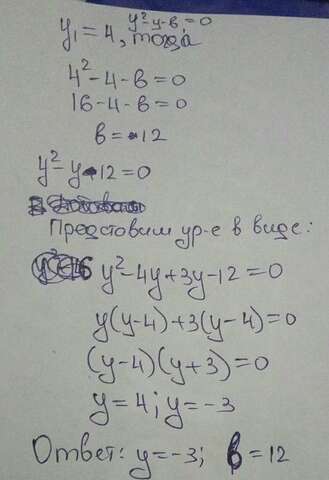 y₁ = 4, y²-y-в=0, тогда
4²-4-в=0
16-4-в=0
в=12
y²-y-12=0
Предстовим ур-е в виде:
y²-4y+3y-12=0
y(y-4)+3(y-4)=0
(y-4)(y+3)=0
y=4; y=-3
Ответ: y=-3; в=12